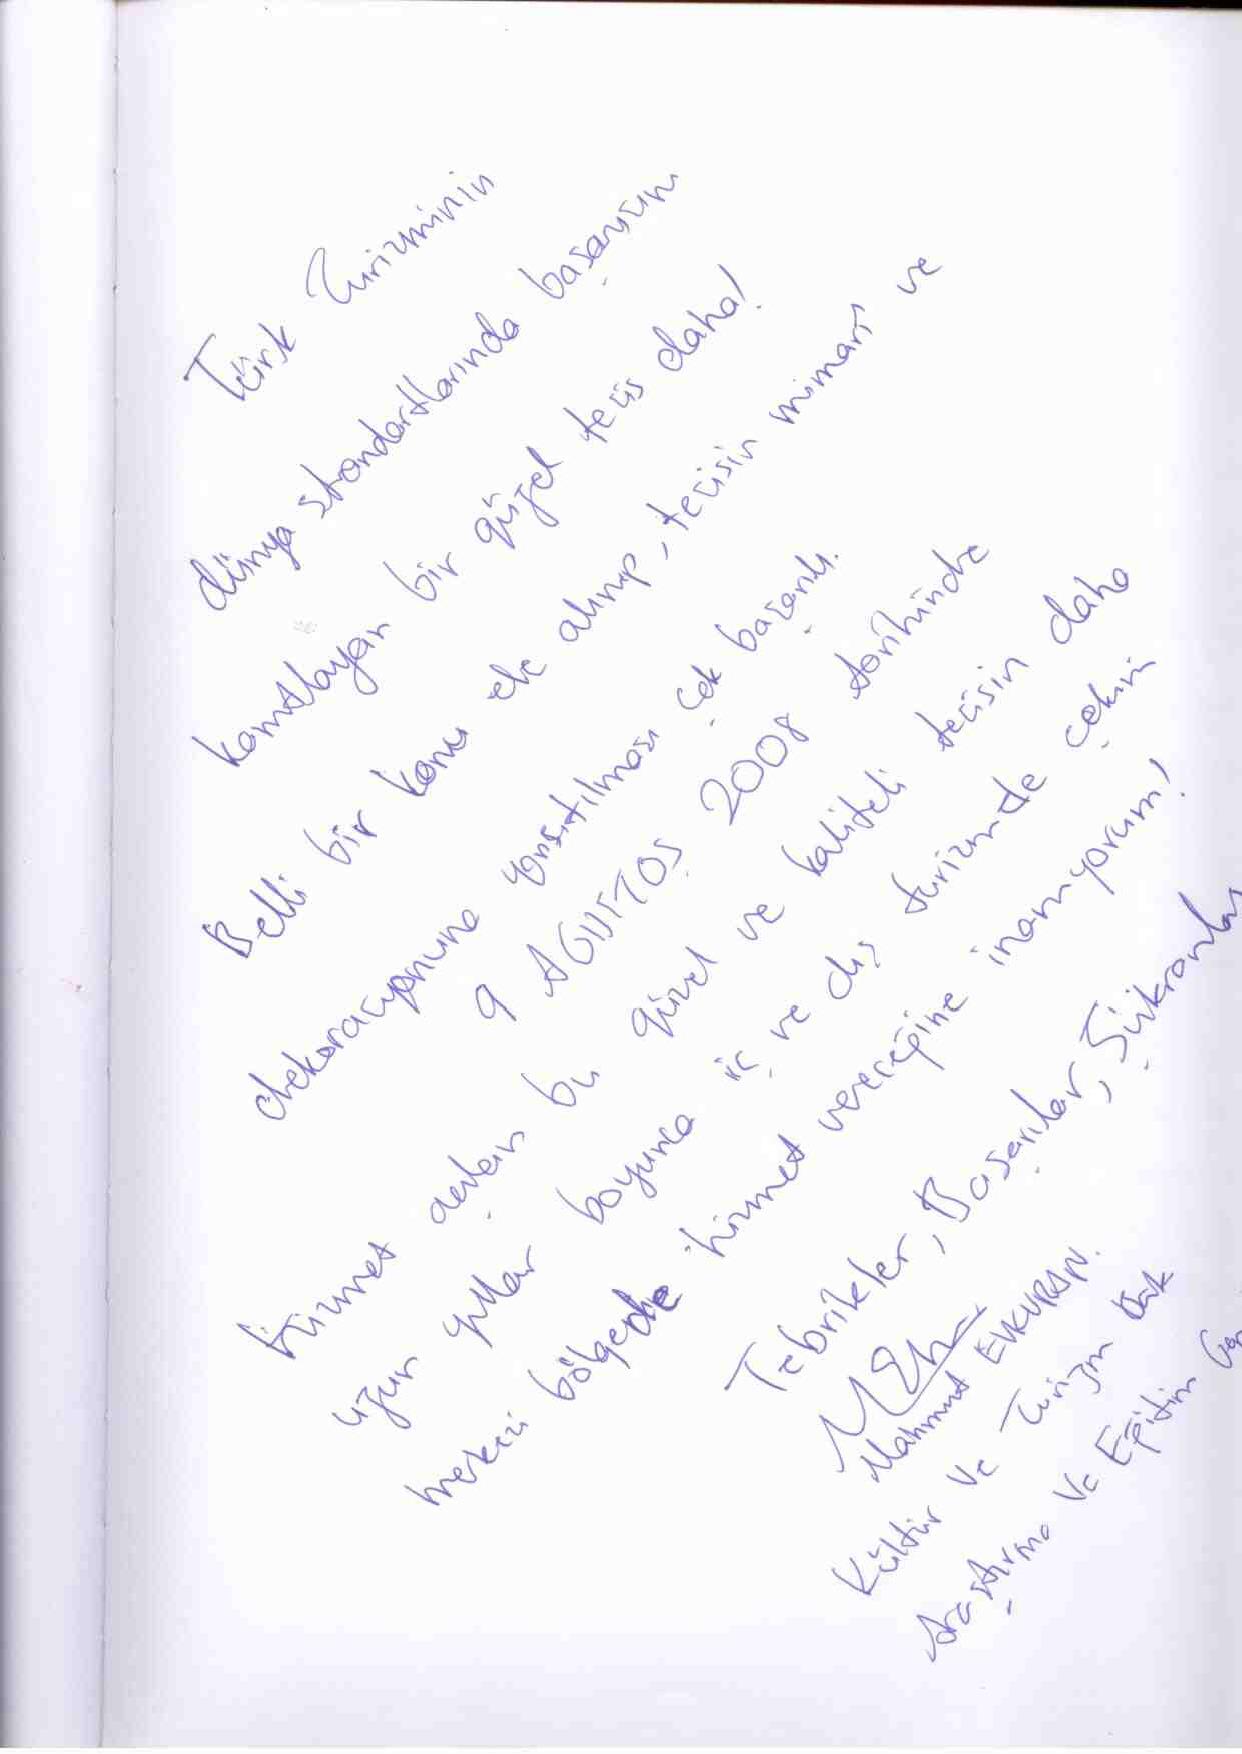 Türk Turizminin
dünya standartlarında başarısını
kanıtlayan bir güzel tesis daha!
Belli bir konu ele alınıp, tesisin mimari ve
dekorasyonuna yansıtılması çok başarılı.
9 AĞUSTOS 2008 tarihinde
hizmet açılan bu güzel ve kaliteli tesisin daha
uzun yıllar boyunca iç ve dış turizmde çekim
merkezi bölgede hizmet vereceğine inanıyorum!
Tebrikler, Başarılar, Şükranlar
Mahmut EVKURAN.
Kültür ve Turizm Bak
Araştırma ve Eğitim